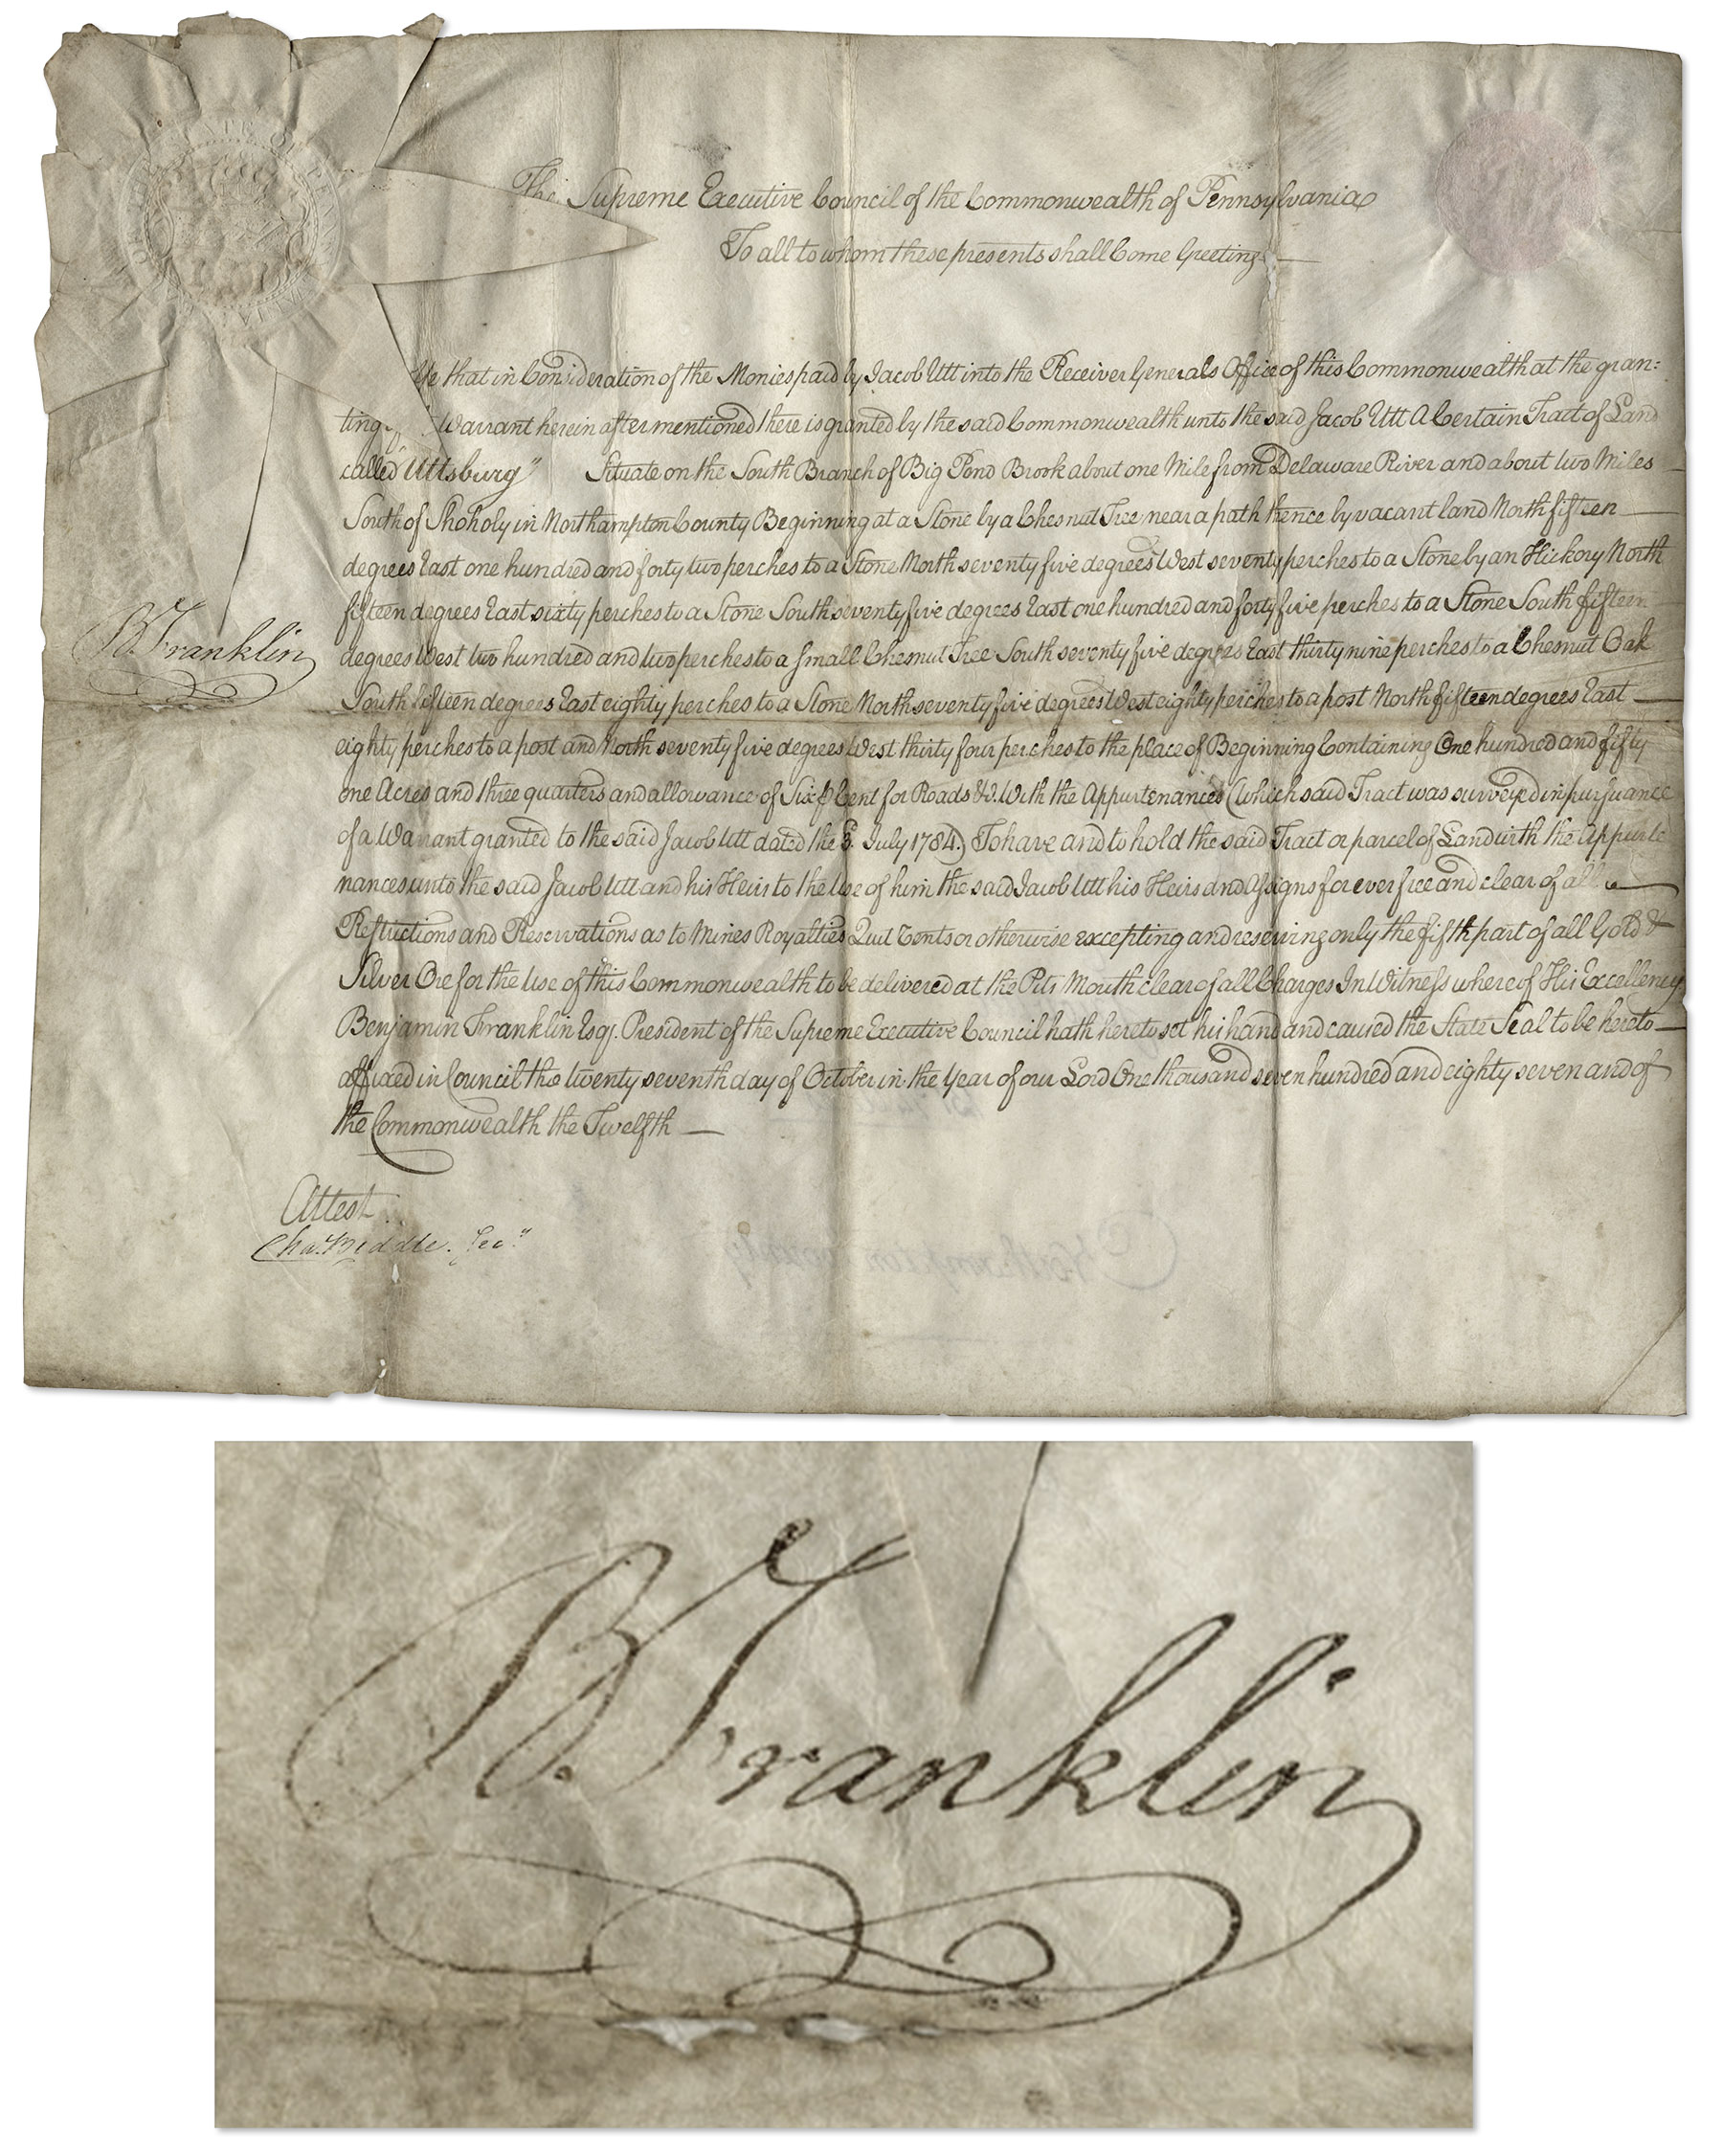 STATE OF PENN
The Supreme Executive Council of the Commonwealth of Pennsylvania
To all to whom these presents shall Come Greeting
Ye that in Consideration of the Monies paid by Jacob Utt into the Receiver Generals Office of this Commonwealth at the gran=
ting Warrant herein after mentioned there is granted by the said Commonwealth unto the said Jacob Utt A Certain Tract of Land
called "Uttsburg" Situate on the South Branch of Big Pond Brook about one Mile from Delaware River and about two Miles
South of Shoholy in Northampton County Beginning at a Stone by a Chesnut Tree near a path thence by vacant land North fifteen
degrees East one hundred and forty two perches to a Stone North seventy five degrees West seventy perches to a Stone by an Hickory North
fifteen degrees East sixty perches to a Stone South seventy five degrees East one hundred and forty five perches to a Stone South fifteen
degrees West two hundred and two perches to a small Chesnut Tree South seventy five degrees East thirty nine perches to a Chesnut Oak
South fifteen degrees East eighty perches to a Stone North seventy five degrees West eighty perches to a post North fifteen degrees East
eighty perches to a post and North seventy five degrees West thirty four perches to the place of Beginning Containing One hundred and fifty
one Acres and three quarters and allowance of Six ⅌ Cent for Roads &c. With the Appurtenances (which said Tract was surveyed in pursuance
of a Warrant granted to the said Jacob Utt dated the July 1784.) To have and to hold the said Tract or parcel of Land with the Appurte
nances unto the said Jacob Utt and his Heirs to the Use of him the said Jacob Utt his Heirs and Assigns for ever free and clear of all
Restrictions and Reservations as to Mines Royalties Quit Rents or otherwise excepting and reserving only the fifth part of all Gold &
Silver Ore for the Use of this Commonwealth to be delivered at the Pits Mouth clear of all Charges In Witness whereof His Excellency
Benjamin Franklin Esqr. President of the Supreme Executive Council hath hereto set his hand and caused the State Seal to be hereto
affixed in Council this twenty seventh day of October in the Year of our Lord One thousand seven hundred and eighty seven and of
the Commonwealth the Twelfth
B. Franklin
Attest
Chas. Biddle. Secy.
Northampton County
B. Franklin